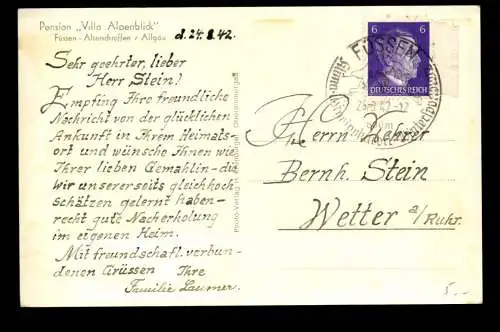 Pension „Villa Alpenblick"
Füssen - Alterschroffen / Allgäu
d. 24.8.42.
Sehr geehrter, lieber
Herr Stein!
Empfing Ihre freundliche
Nachricht von der glücklichen
Ankunft in Ihrem Heimats-
ort und wünsche Ihnen wie
Ihrer lieben Gemahlin - die
wir unsererseits gleichhoch
schätzen gelernt haben -
recht gute Nacherholung
im eigenen Heim.
Mit freundschaftl. verbun-
denen Grüssen Ihre
Familie Laumer.
6 6
FÜSSEN
Herrn Lehrer
Bernh. Stein
Wetter a/Ruhr.
5.-